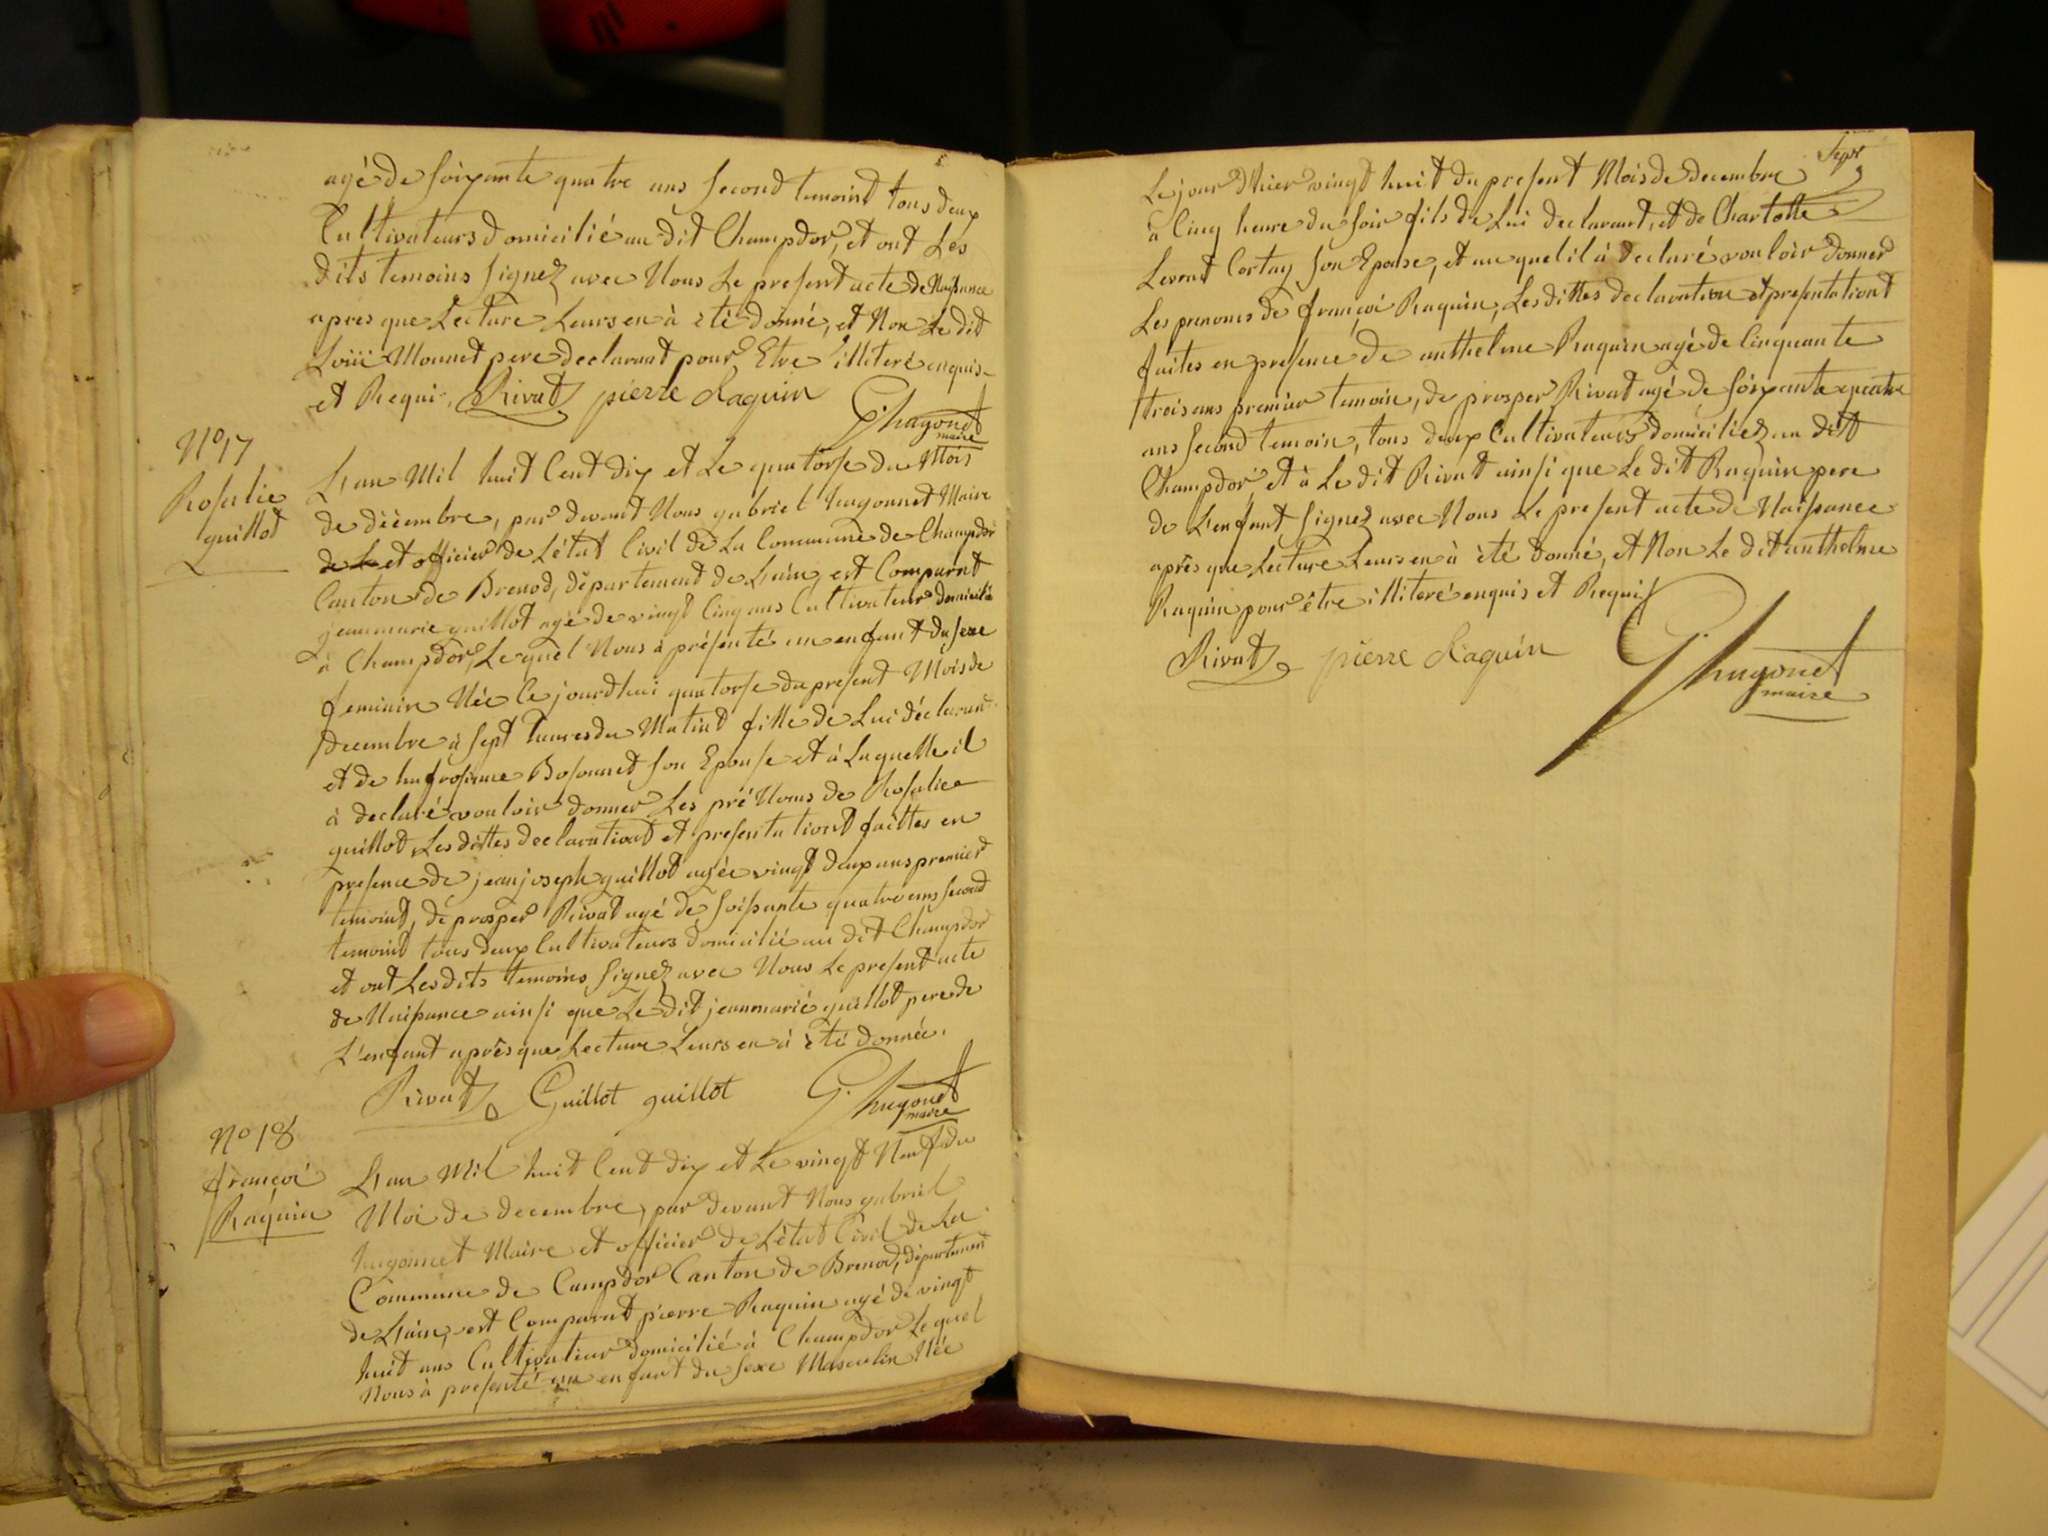 agé de soixante quatre ans second temoint tous deux
Cultivateurs domicilié au dit Champdor, et ont Les
dits temoins signez avec Nous Le present acte de Naissance
apres que Lecture Leurs en à été donné, et Non Le dit
Loüi Monnet pere declarant pour Etre illiteré enquis
et Requi. Rivat pierre Raquin
G. hugonet
maire
No 17
Rosalie
guillot
L'an Mil huit Cent dix et Le quatorse du Mois
de décembre, par devant Nous gabriel hugonnet Maire
et officier de L'état Civil de La Commune de Champdor
Canton de Brenod, département de L'ain, est Comparut
jeanmarie guillot agé de vingt Cinq ans Cultivateur domicilié
à Champdor, Lequel Nous à présenté un enfant du sexe
feminin Née Ce jourdhui quatorse du present Mois de
decembre à sept heures du Matint fille de Lui déclarant
et de hufrosinne Bosonnet son Epouse et à Laquelle il
à declaré vouloir donner Les pré Noms de Rosalie
guillot Les dittes declarationt et presentationt faittes en
presence de jeanjoseph guillot agée vingt deux ans premier
temoint, de prosper Rivat agé de soisante quatre ans second
temoint tous deux Cultivateurs domicilié au dit Champdor
et ont Les dits temoins signez avec Nous Le present acte
de Naissance ainsi que Le dit jeanmarie guillot pere de
L'enfant aprés que Lecture Leurs en à été donnée.
Rivat Guillot guillot G. hugonet
maire
No 18
françoi
Raquin
L'an Mil huit Cent dix et Le vingt Neuf du
Moi de decembre, par devant Nous gabriel
hugonnet Maire et officier de L'état Civil de La
Commune de Campdor Canton de Brenod, département
de L'ain, est Comparut pierre Raquin agé de vingt
huit ans Cultivateur domicilié à Champdor Lequel
Nous à presenté un enfant du sexe Masculin Née
Sept
Le jour d'hier vingt huit du present Mois de decembre
à Cinq heure du soir fils de Lui declarant, et de Charlotte
Levrat Cortay son Epouse, et au quel il à declaré vouloir donner
Les prenoms de françoi Raquin, Les dittes declaration et presentationt
faites en presence de anthelme Raquin agé de Cinquante
trois ans premier temoin, de prosper Rivat agé de soixante quatre
ans second temoin, tous deux Cultivateurs domiciliez au dit
Champdor, et à Le dit Rivat ainsi que Le dit Raquin pere
de L'enfant signez avec Nous Le present acte de Naissance
après que Lecture Leurs en à été donné, et Non Le dit anthelme
Raquin pour être illiteré enquis et Requis
Rivat pierre Raquin G. hugonet
maire